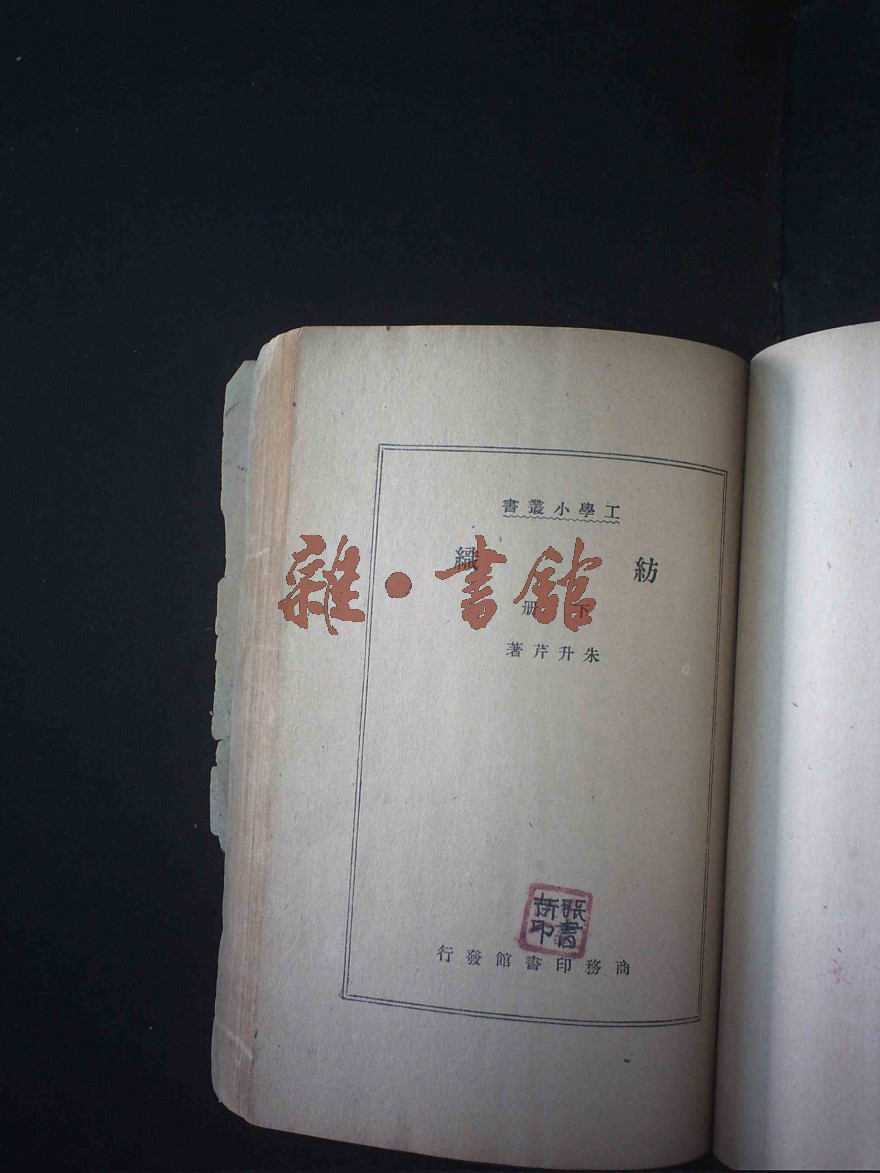 工學小叢書
紡織
下册
朱升芹著
商務印書館發行
雜·書館